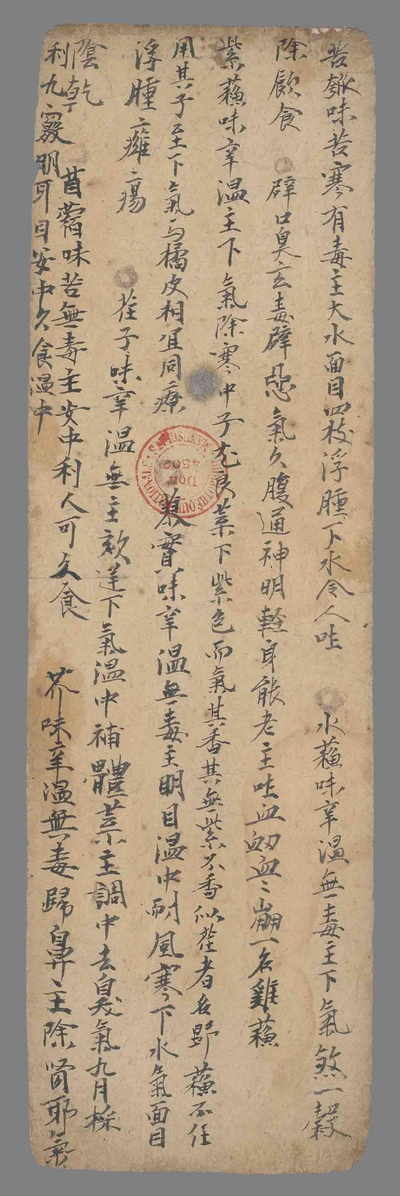 苦瓠味苦寒有毒主大水面目四枝浮腫下水令人吐 水蘓味辛温無毒主下氣煞一穀
除飲食 辟口臭玄毒辟惡氣久腹通神明軽身能老主吐血衂血〻崩一名雞蘓
紫蘓味辛温主下氣除寒中子尤良葉下紫色而氣甚香其無紫不香似荏者名野蘓不任
用其子主下氣与橘皮相宜同療 蓼實味辛温無毒主明目温中耐風寒下水氣面目
浮腫癰瘍 荏子味辛温無主欬逆下氣温中補體葉主調中去臭氣九月採
陰乹 苜蓿味苦無毒主安中利人可久食 芥味辛温無毒歸鼻主除肾耶氣
利九竅明耳目安中久食温中